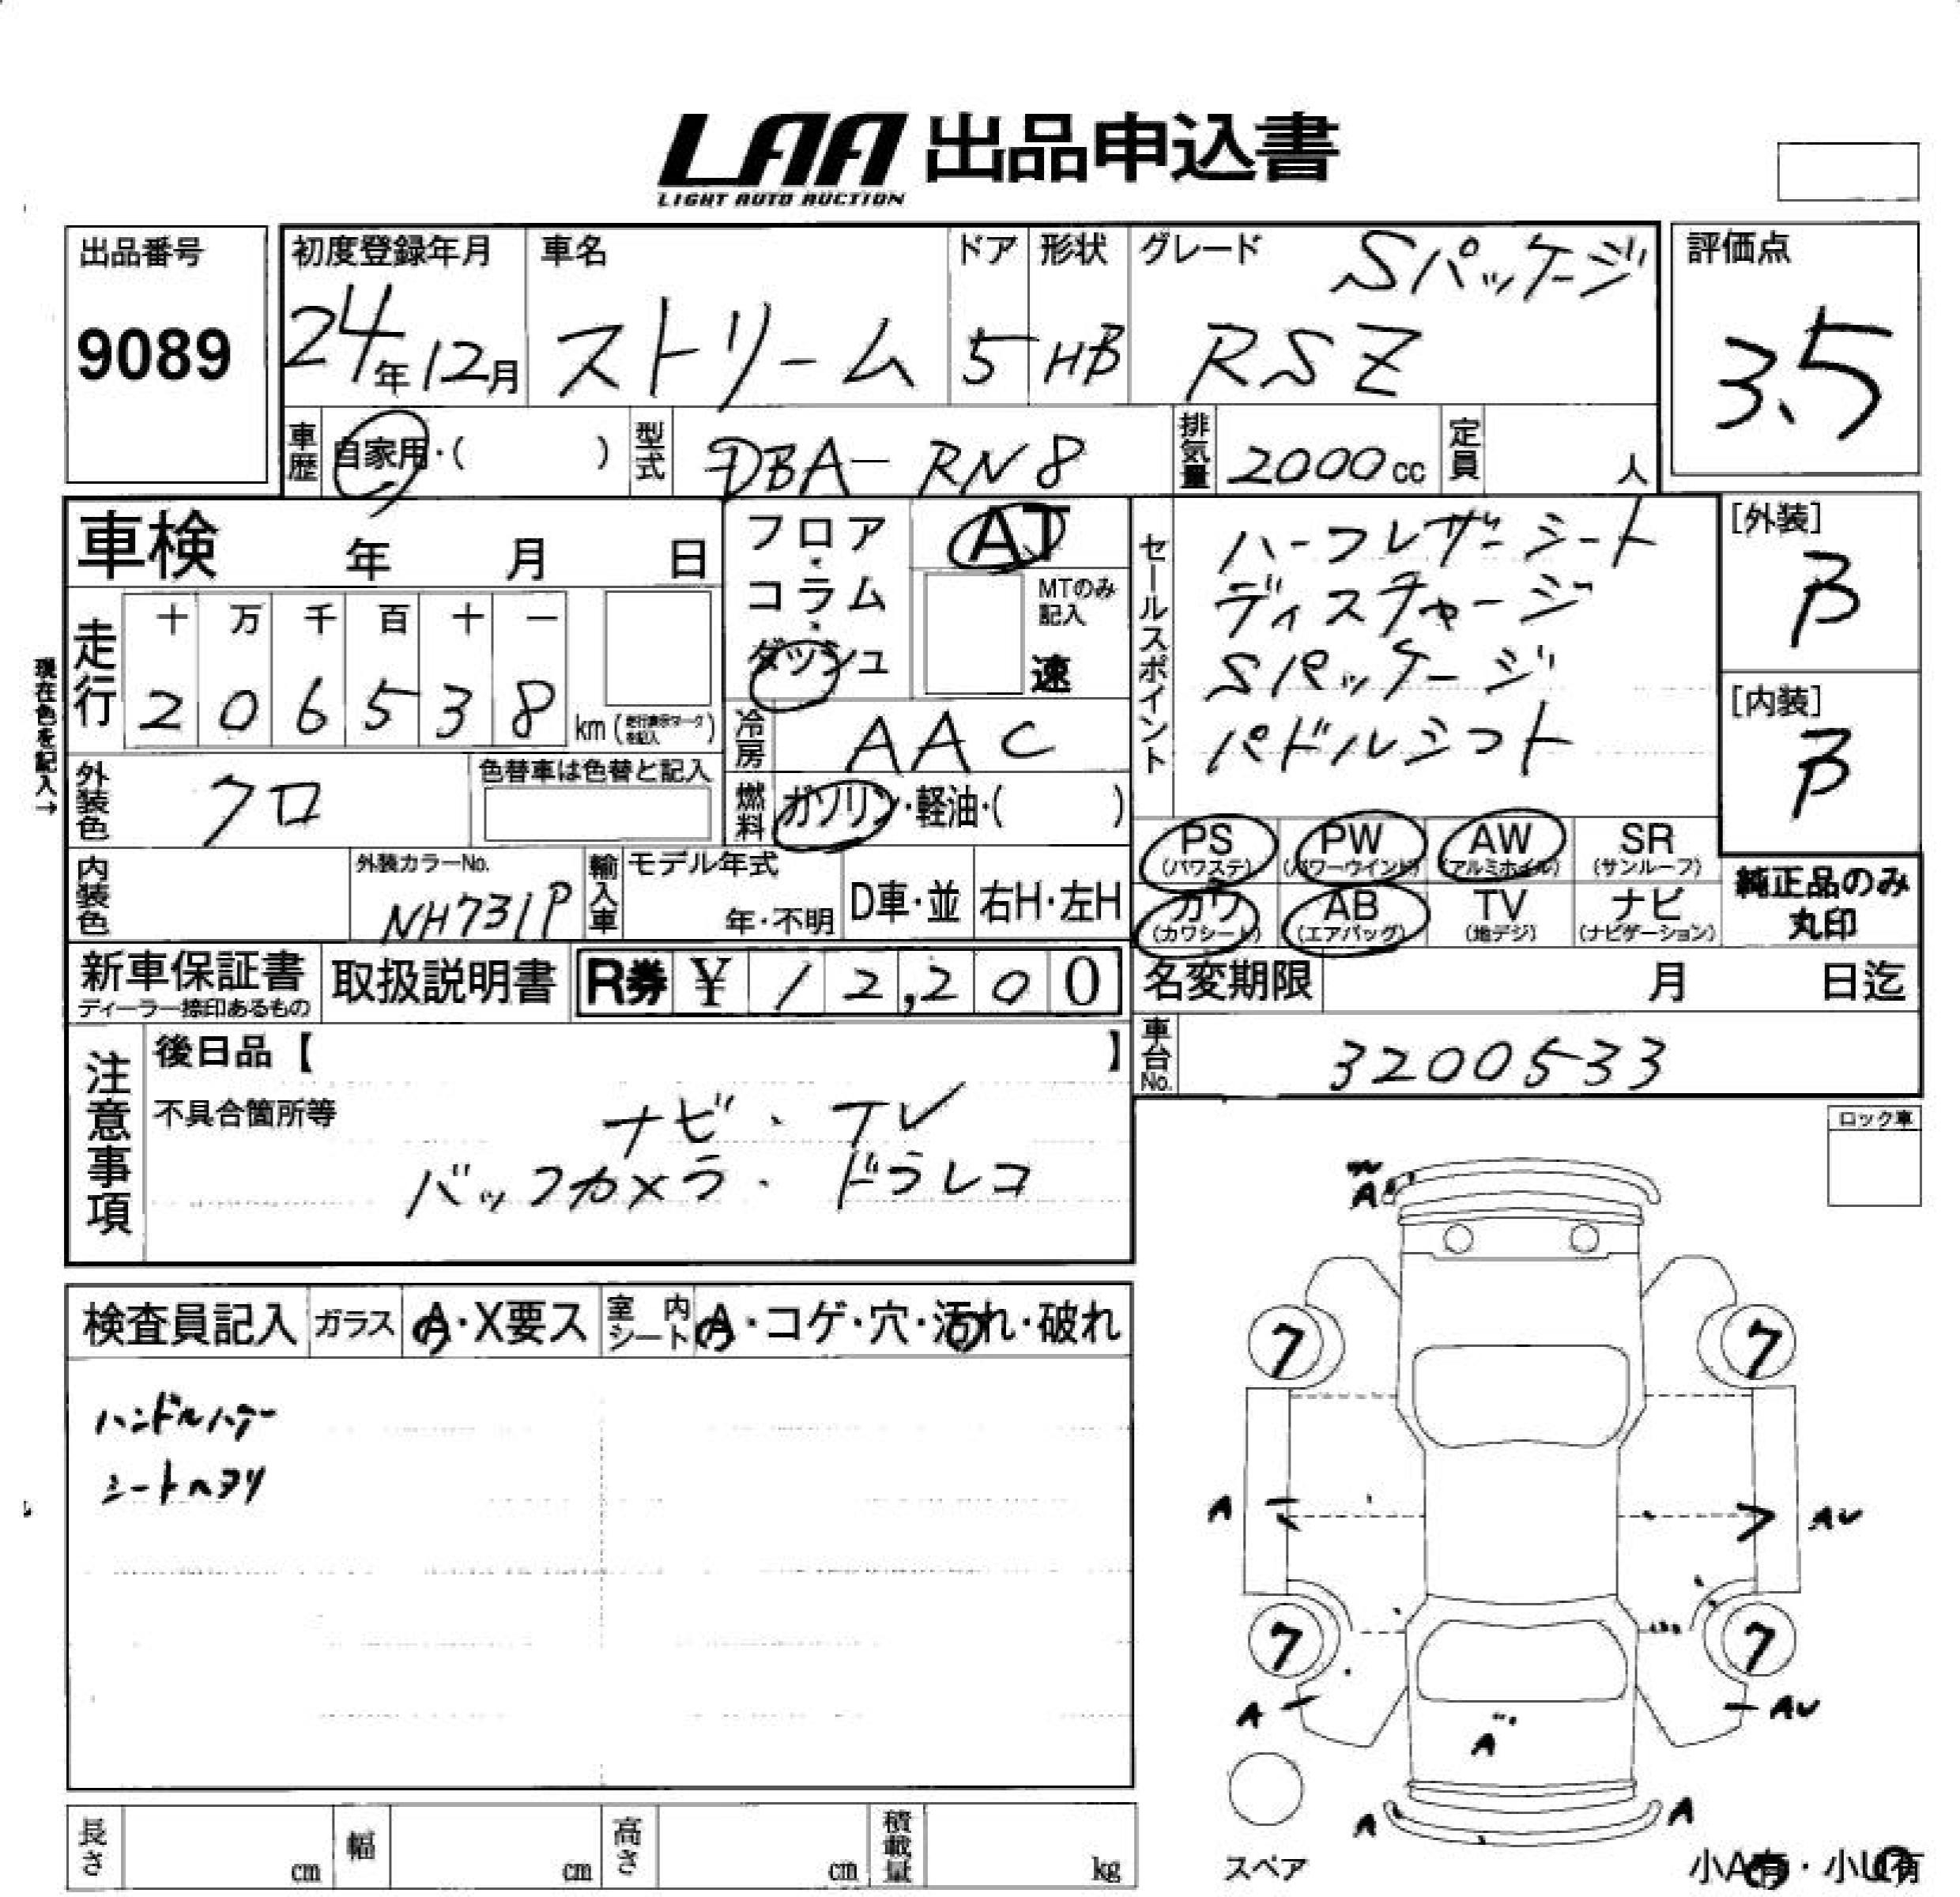 LAA 出品申込書
LIGHT AUTO AUCTION
出品番号
9089
初度登録年月
24年12月
車名
ストリーム
ドア
5
形状
HB
グレード
Sパッケージ
RSZ
評価点
3.5
車歴
自家用・( )
型式
DBA-RN8
排気量
2000cc
定員
人
車検 年 月 日
現在色を記入→
走行
十 万 千 百 十 一
2 0 6 5 3 8 km (走行表示マークを記入)
フロア・コラム・ダッシュ
AT
MTのみ記入
速
冷房
AAC
燃料
ガソリン・軽油・( )
セールスポイント
ハーフレザーシート
ディスチャージ
Sパッケージ
パドルシフト
[外装]
B
[内装]
B
外装色
クロ
色替車は色替と記入
内装色
外装カラーNo.
NH731P
輸入車
モデル年式
年・不明
D車・並
右H・左H
PS (パワステ)
PW (パワーウインド)
AW (アルミホイル)
SR (サンルーフ)
カワ (カワシート)
AB (エアバッグ)
TV (地デジ)
ナビ (ナビゲーション)
純正品のみ丸印
新車保証書
ディーラー捺印あるもの
取扱説明書
R券 ¥ 12,200
名変期限 月 日迄
車台No.
3200533
注意事項
後日品【 】
不具合箇所等
ナビ・TV
バックカメラ・ドラレコ
ロック車
検査員記入
ガラス
A・X要ス
室内シート
A・コゲ・穴・汚れ・破れ
ハンドルハゲ
シートヘタリ
A
7 7
A AU
7 7
A AU
A
A A
スペア
小A有・小U有
長さ cm
幅 cm
高さ cm
積載量 kg